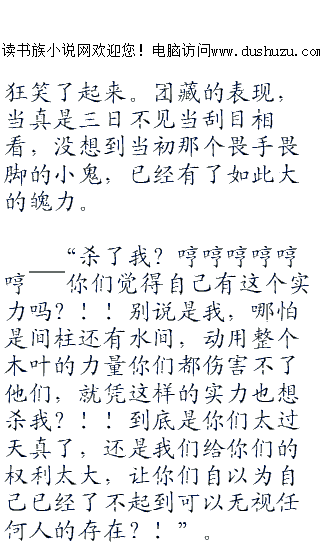 读书族小说网欢迎您！电脑访问www.dushuzu.com
狂笑了起来。团藏的表现，
当真是三日不见当刮目相
看，没想到当初那个畏手畏
脚的小鬼，已经有了如此大
的魄力。
“杀了我？哼哼哼哼哼
哼——你们觉得自己有这个实
力吗？！！别说是我，哪怕
是间柱还有水间，动用整个
木叶的力量你们都伤害不了
他们，就凭这样的实力也想
杀我？！！到底是你们太过
天真了，还是我们给你们的
权利太大，让你们自以为自
己已经了不起到可以无视任
何人的存在？！”。